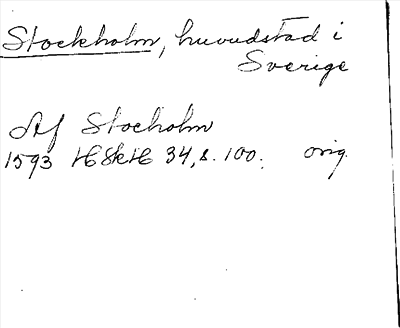 Stockholm, huvudstad i
Sverige
Af Stocholm
1593 HSkH 34, s. 100. orig.